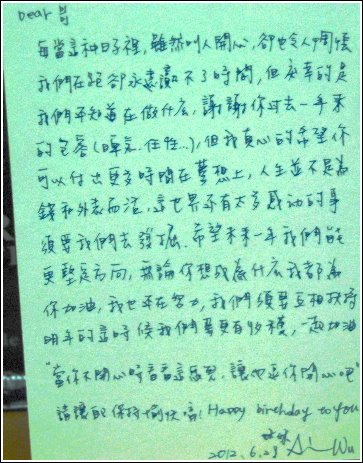 Dear 哥
每當這种日子裡，雖然叫人開心，卻也令人惆悵
我們在距卻永遠贏不了時間，但慶幸的是
我們都知道在做什広，謝謝你过去一年來
的包容(脾氣、任性...)，但我真心的希望你
可以付出更多時間在夢想上，人生並不是為
錢和外表而活，這世界还有太多感动的事
須要我們去發掘、希望未來一年我們能
更堅定方向，無論你想成為什広我都為
你加油，我也正在努力，我們須要互相扶持
明年的這時候我們要更有夠棒，一起加油
"當你不開心時看看這張卡，讓他逗你開心吧"
請讓自己保持愉快喔! Happy birthday to you
妹妹
2012.6.23 Wu